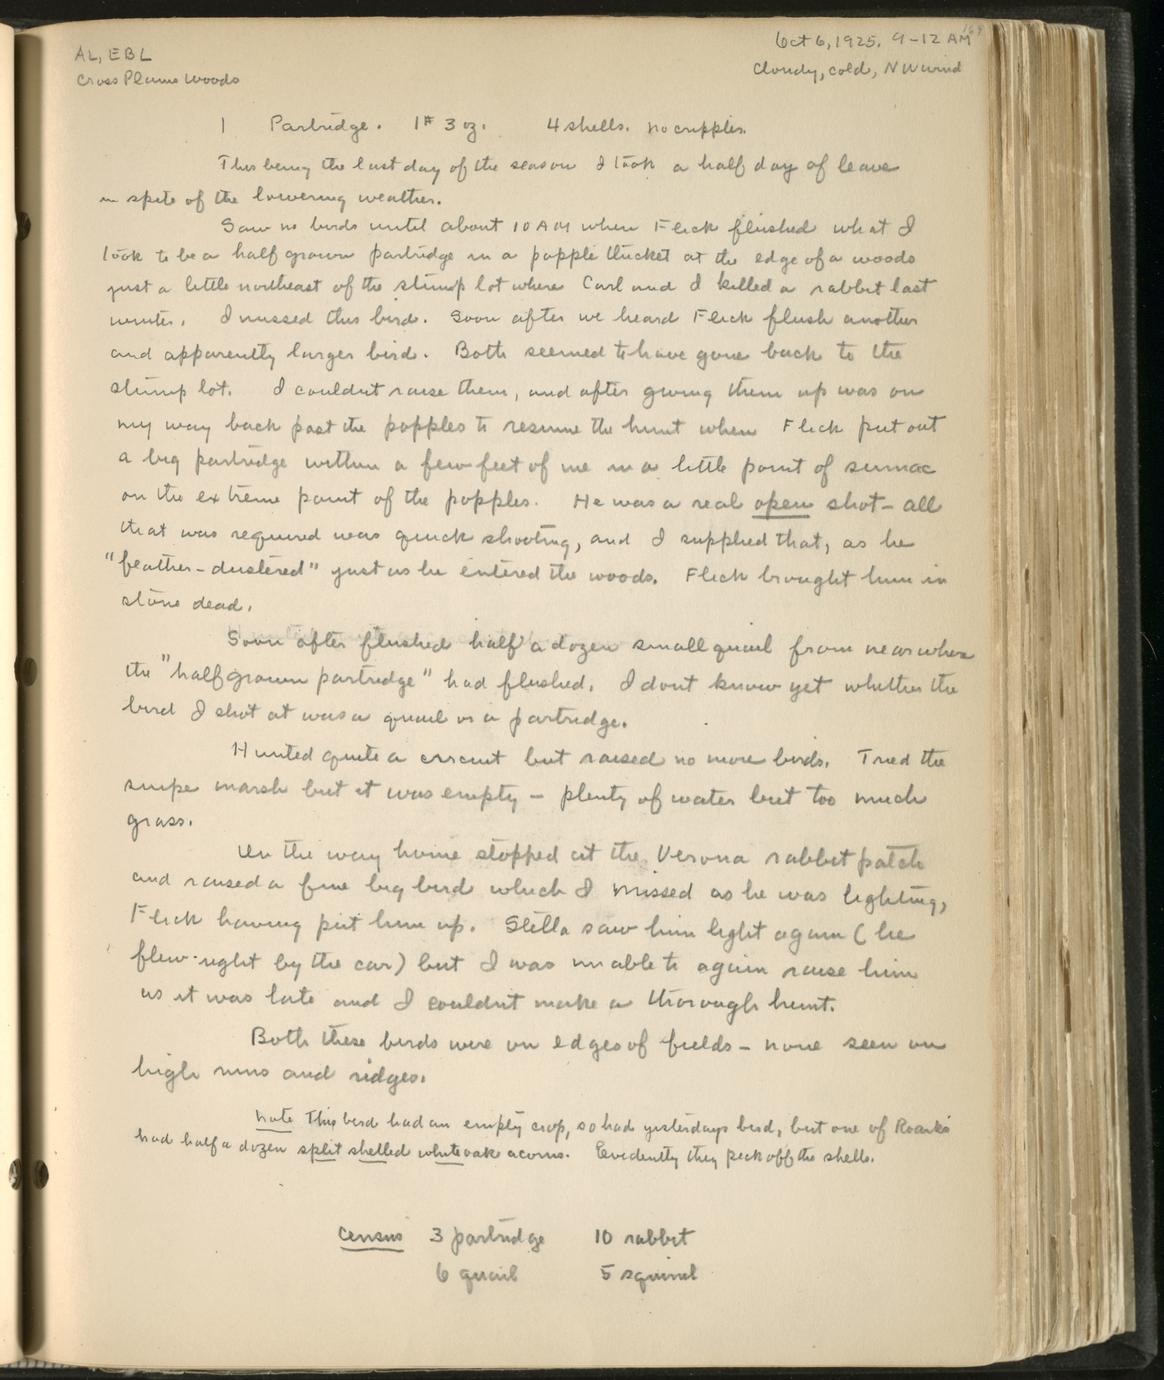 AL, EBL
Cross Plains Woods
Oct 6, 1925. 9-12 AM
Cloudy, cold, NW wind
1 Partridge. 1# 3 oz. 4 shells. no cripples.
This being the last day of the season I took a half day of leave
in spite of the lowering weather.
Saw no birds until about 10 AM when Flick flushed what I
took to be a half grown partridge in a popple thicket at the edge of a woods
just a little northeast of the stump lot where Carl and I killed a rabbit last
winter. I missed this bird. Soon after we heard Flick flush another
and apparently larger bird. Both seemed to have gone back to the
stump lot. I couldnt raise them, and after giving them up was on
my way back past the popples to resume the hunt when Flick put out
a big partridge within a few feet of me in a little point of sumac
on the extreme point of the popples. He was a real open shot - all
that was required was quick shooting, and I supplied that, as he
"feather-dustered" just as he entered the woods. Flick brought him in
stone dead.
Soon after flushed half a dozen small quail from near where
the "half grown partridge" had flushed. I dont know yet whether the
bird I shot at was a quail or a partridge.
Hunted quite a circuit but raised no more birds. Tried the
snipe marsh but it was empty - plenty of water but too much
grass.
On the way home stopped at the Verona rabbit patch
and raised a fine big bird which I missed as he was lighting,
Flick having put him up. Stella saw him light again (he
flew right by the car) but I was unable to again raise him
as it was late and I couldnt make a thorough hunt.
Both these birds were on edges of fields - none seen on
high runs and ridges.
Note This bird had an empty crop, so had yesterdays bird, but one of Roarks
had half a dozen split shelled white oak acorns. Evidently they pick off the shells.
Census 3 partridge 10 rabbit
6 quail 5 squirrel